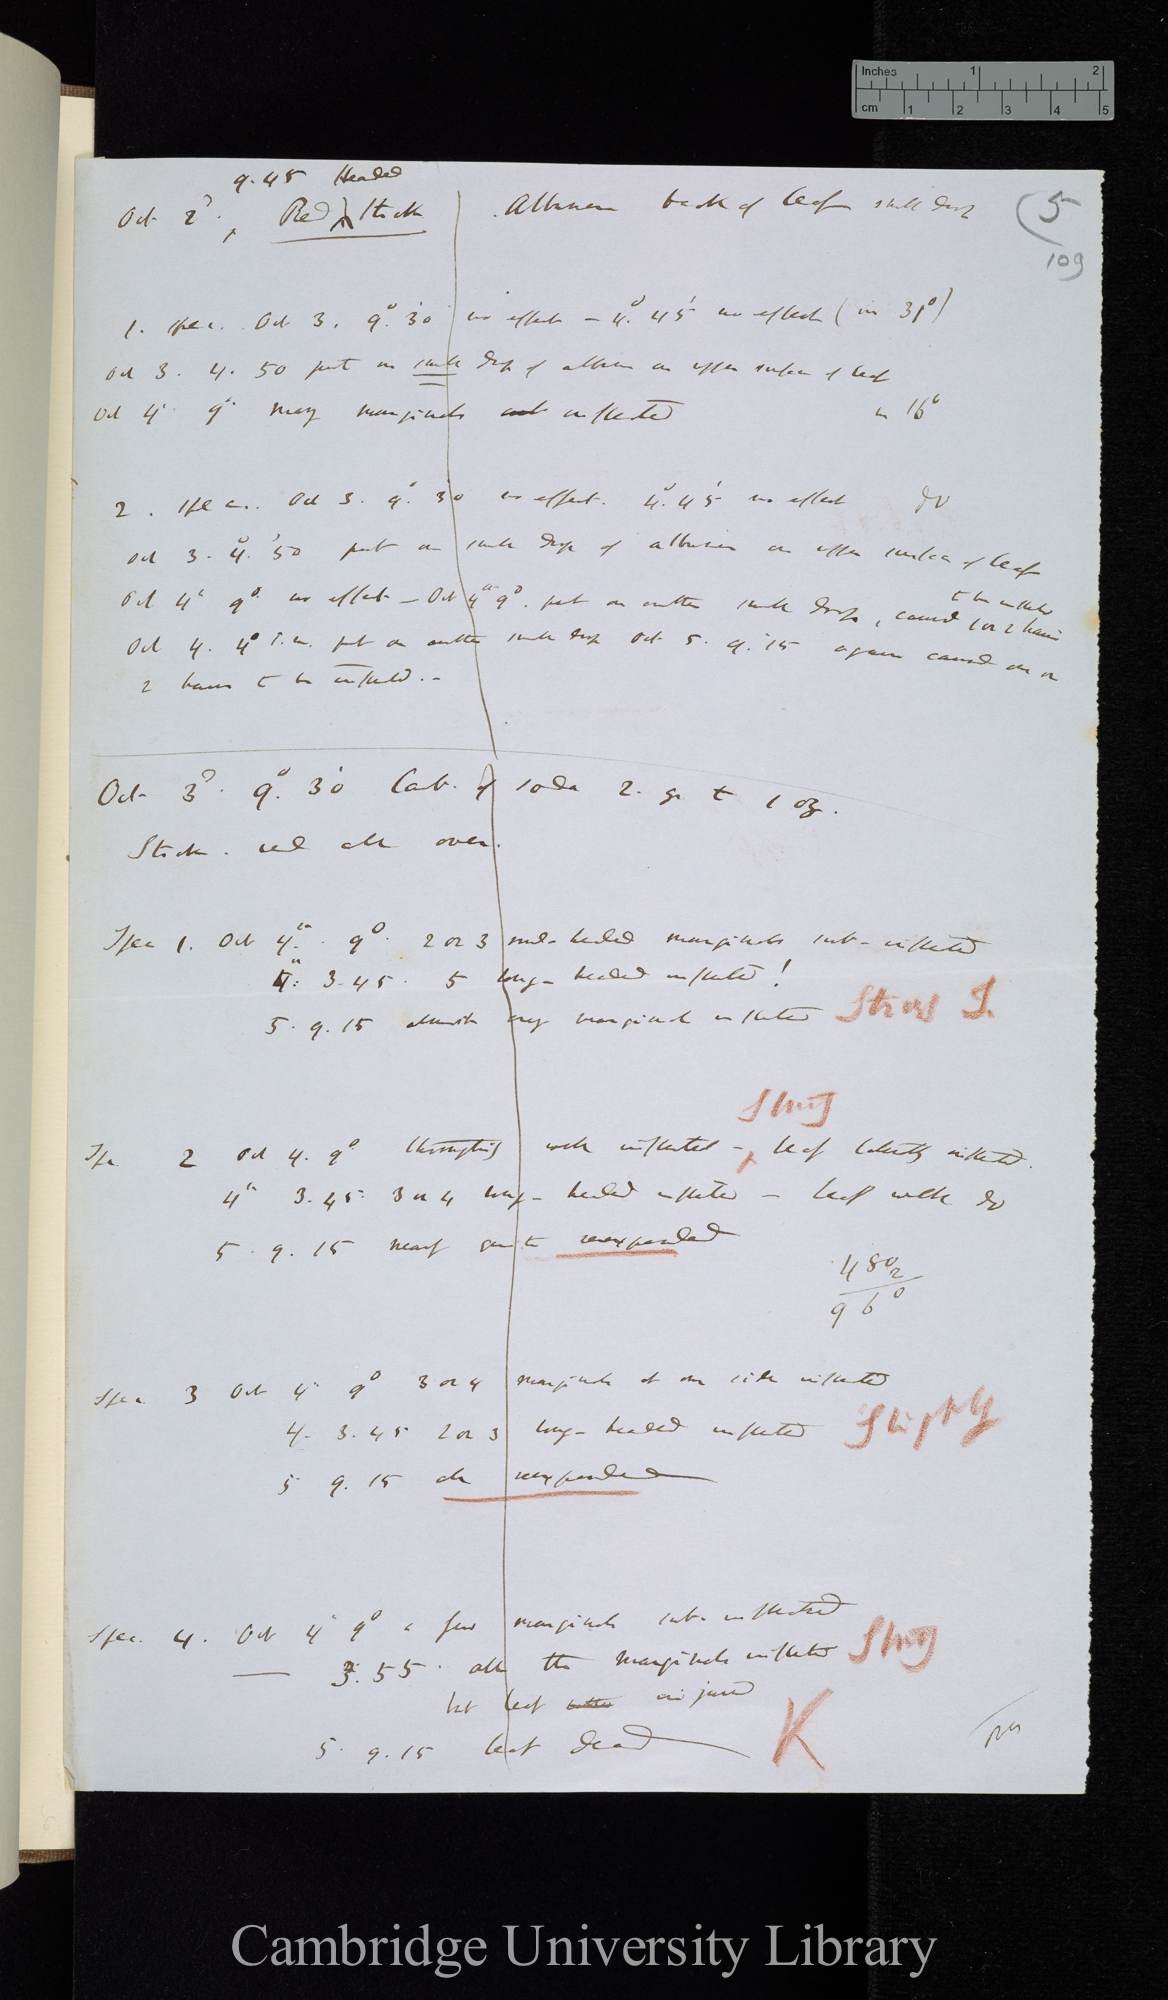 Inches 1 2
cm 1 2 3 4 5
9.45 Headed
Oct 2d. Red ^ Stick Albumen back of leaf small drop
(5
109
1. Spec. Oct 3. 9° 30' no effect — 4° 45' no effect (in 31°)
Oct 3. 4. 50 put on small drop of albumen on upper surface of leaf
Oct 4 9° many marginals inflected in 16°
2. Spec. Oct 3. 9° 30 no effect. 4° 45' no effect do
Oct 3. 4° 50' put on small drop of albumen on upper surface of leaf
to be inflected
Oct 4th 9° no effect — Oct 4th 9°. put on another small drop, caused 1 or 2 hairs
Oct 4. 4° P.m. put on another small drop Oct. 5. 9.15 again caused one or
2 hairs to be inflected.—
Oct 3d. 9° 30' Carb. of soda 2. gr to 1 oz.
Stick. red all over.
Spec 1. Oct 4th. 9°. 2 or 3 red-headed marginals sub-inflected
4th: 3.45. 5 long-headed inflected!
5. 9.15 almost every marginal inflected
Strong I.
Strong
Spe 2 Oct 4. 9° well inflected — ^ leaf inflected.
4th 3.45. 3 or 4 long-headed inflected — leaf well do
5. 9. 15 nearly quite reexpanded
48°
2
96°
Spec 3 Oct 4 9° 3 or 4 marginals at one side inflected
4. 3.45 2 or 3 long-headed inflected
Slightly
5 9.15 all reexpanded
Spec. 4. Oct 4 9° a few marginals sub-inflected
— 3.55. all the marginals inflected
Strong
but leaf injured
5. 9.15 leaf dead
K
Cambridge University Library